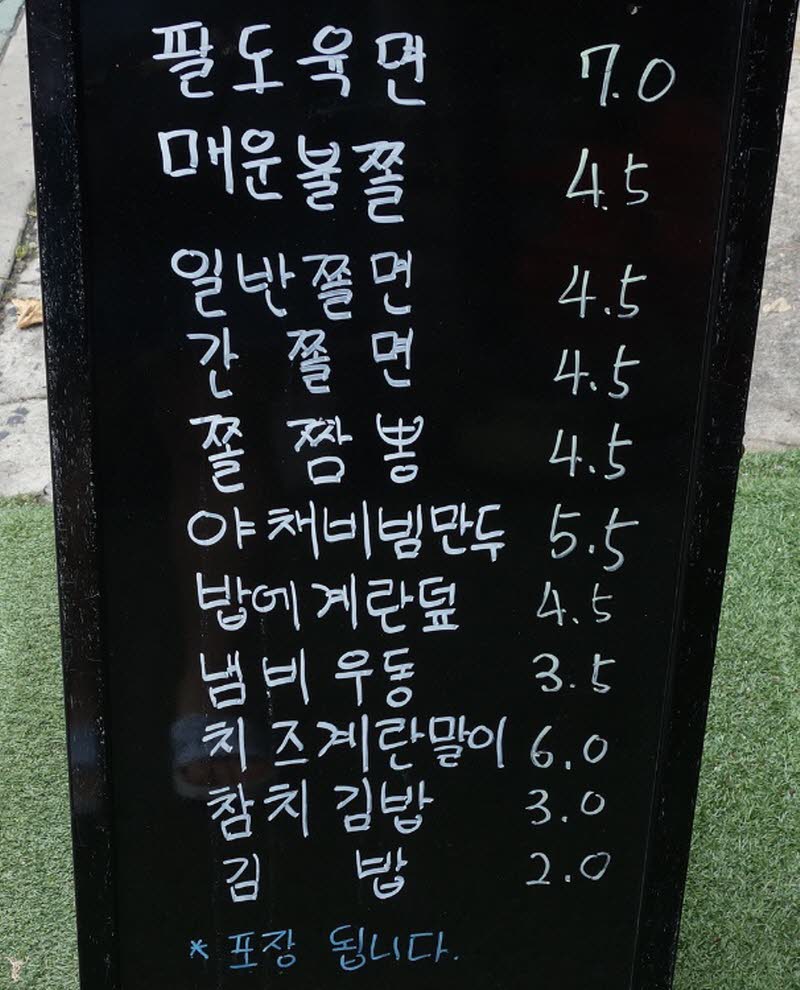 팔도육면 7.0
매운불쫄 4.5
일반쫄면 4.5
간쫄면 4.5
쫄짬뽕 4.5
야채비빔만두 5.5
밥에계란덮 4.5
냄비우동 3.5
치즈계란말이 6.0
참치김밥 3.0
김밥 2.0
* 포장 됩니다.